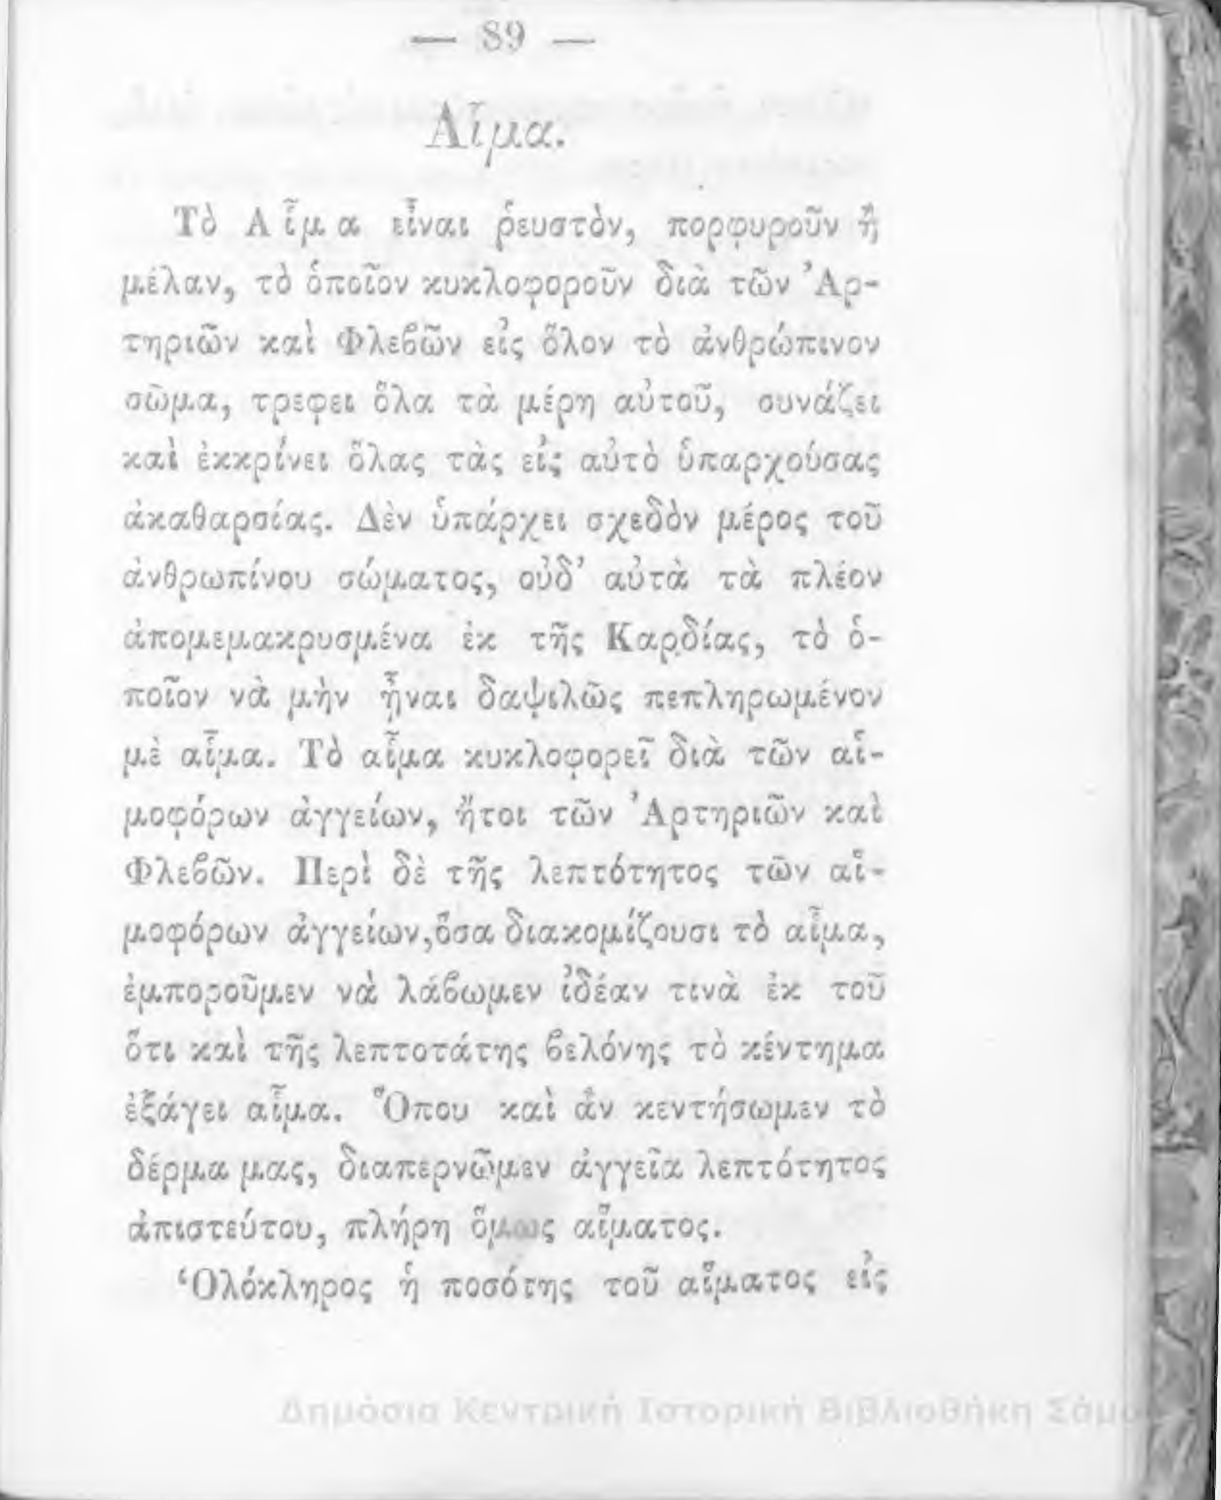 — 89 —
Αἷμα.
Τὸ Αἷμα εἶναι ῥευστὸν, πορφυροῦν ἢ
μέλαν, τὸ ὁποῖον κυκλοφοροῦν διὰ τῶν Ἀρ-
τηριῶν καὶ Φλεβῶν εἰς ὅλον τὸ ἀνθρώπινον
σῶμα, τρεφει ὅλα τὰ μέρη αὐτοῦ, συνάζει
καὶ ἐκκρίνει ὅλας τὰς εἰς αὐτὸ ὑπαρχούσας
ἀκαθαρσίας. Δὲν ὑπάρχει σχεδὸν μέρος τοῦ
ἀνθρωπίνου σώματος, οὐδ’ αὐτὰ τὰ πλέον
ἀπομεμακρυσμένα ἐκ τῆς Καρδίας, τὸ ὁ-
ποῖον νὰ μὴν ᾖναι δαψιλῶς πεπληρωμένον
μὲ αἷμα. Τὸ αἷμα κυκλοφορεῖ διὰ τῶν αἱ-
μοφόρων ἀγγείων, ἤτοι τῶν Ἀρτηριῶν καὶ
Φλεβῶν. Περὶ δὲ τῆς λεπτότητος τῶν αἱ-
μοφόρων ἀγγείων,ὅσα διακομίζουσι τὸ αἷμα,
ἐμποροῦμεν νὰ λάβωμεν ἰδέαν τινὰ ἐκ τοῦ
ὅτι καὶ τῆς λεπτοτάτης βελόνης τὸ κέντημα
ἐξάγει αἷμα. Ὅπου καὶ ἂν κεντήσωμεν τὸ
δέρμα μας, διαπερνῶμεν ἀγγεῖα λεπτότητος
ἀπιστεύτου, πλήρη ὅμως αἵματος.
Ὁλόκληρος ἡ ποσότης τοῦ αἵματος εἰς
Δημόσια Κεντρική Ιστορική Βιβλιοθήκη Σάμο